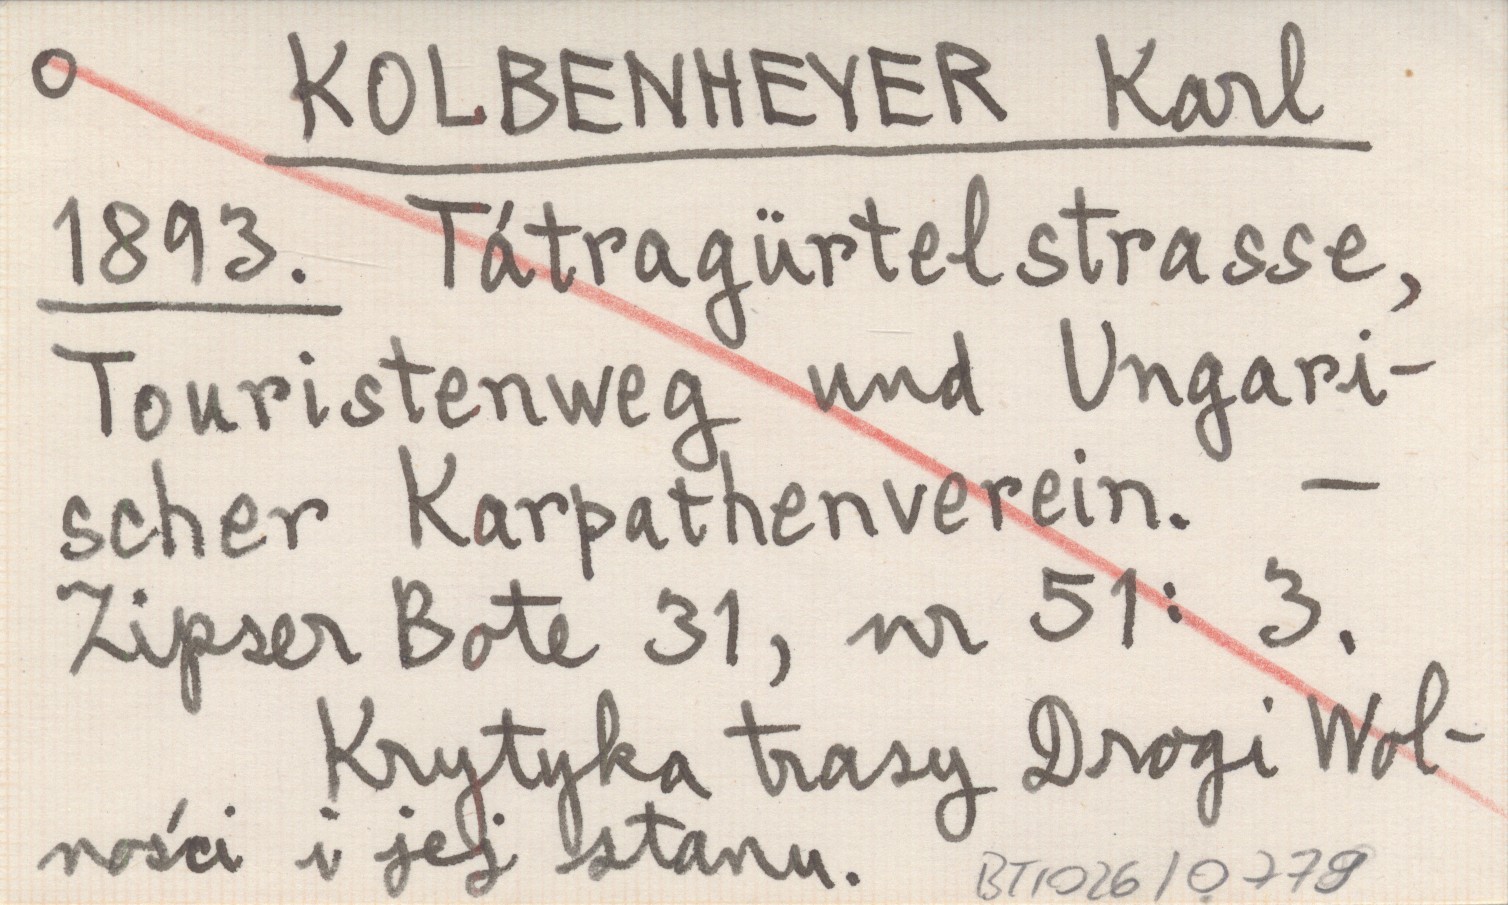 O KOLBENHEYER Karl
1893. Tátragürtelstrasse,
Touristenweg und Ungari-
scher Karpathenverein. —
Zipser Bote 31, nr 51: 3.
Krytyka trasy Drogi Wol-
ności i jej stanu.
BT1026/0778